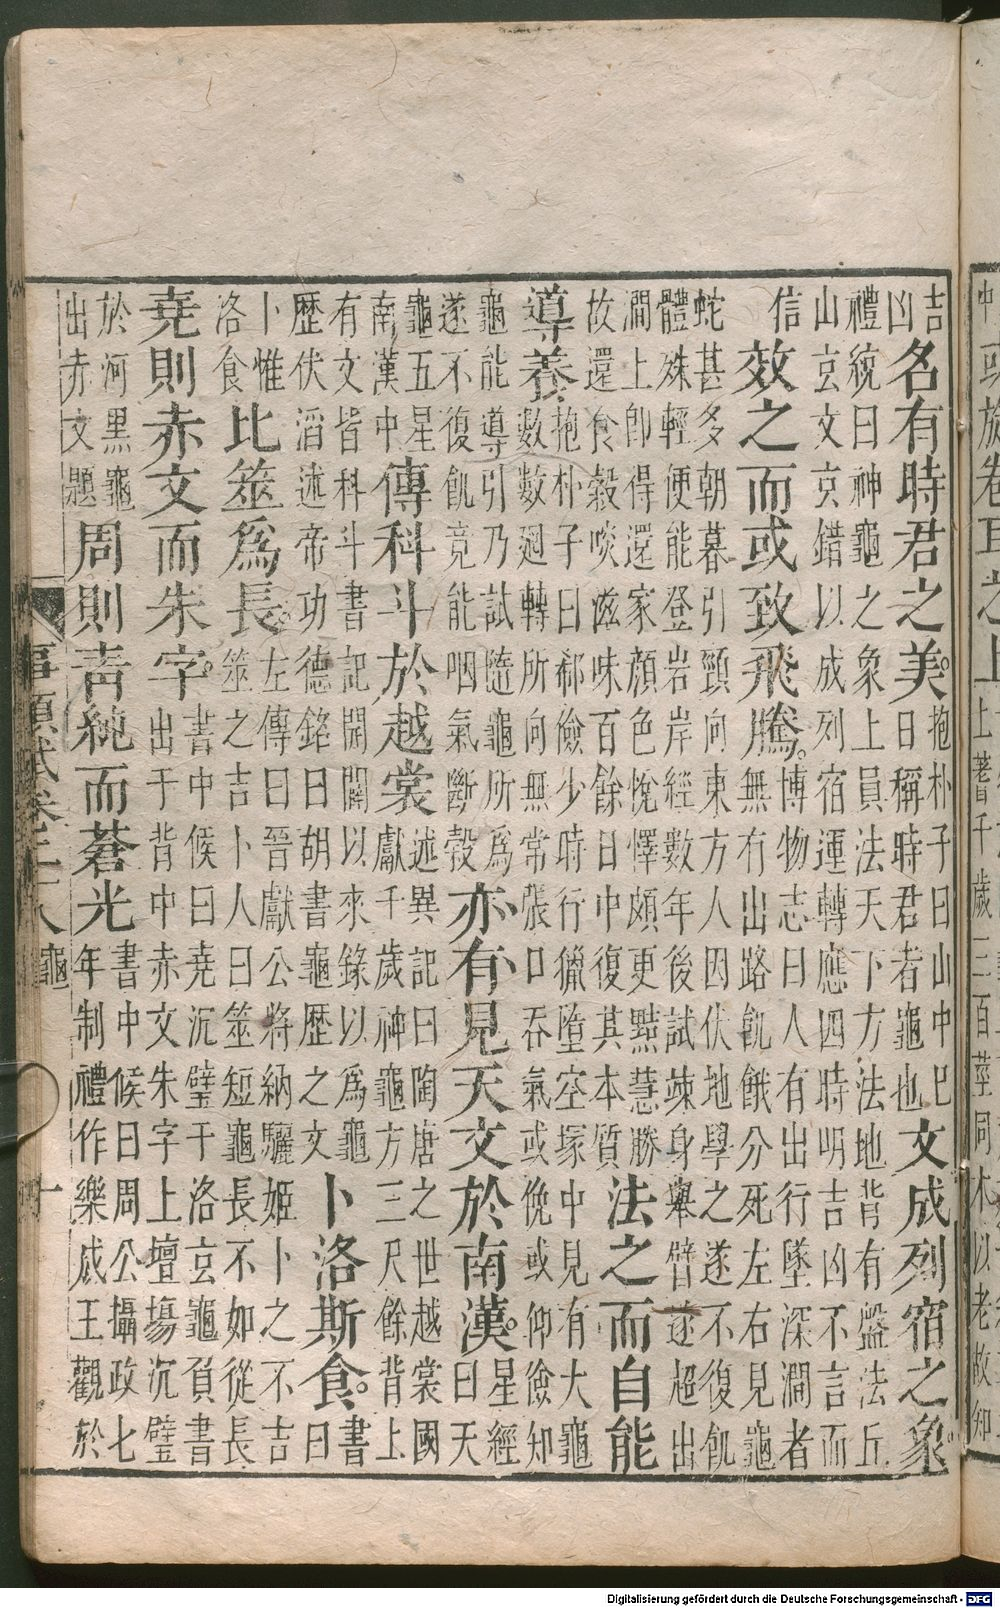 吉
凶
名有時君之美
抱朴子曰山中巳
日稱時君者龜也
文成列宿之象
禮統曰神龜之象上員法天下方法地背有盤法丘
山玄文交錯以成列宿運轉應四時明吉凶不言而
信
效之而或致飛騰
博物志曰人有出行墜深澗者
無有出路飢餓分死左右見龜
蛇甚多朝暮引頸向東方人因伏地學之遂不復飢
體殊輕便能登岩岸經數年後試竦身舉臂遂超出
澗上即得還家顔色悅懌頗更黠慧勝
故還食穀啖滋味百餘日中復其本質
法之而自能
導養
抱朴子曰郗儉少時行獵墮空塚中見有大龜
數數廻轉所向無常張口吞氣或俛或仰儉知
龜能導引乃試隨龜所為
遂不復飢竟能咽氣斷穀
亦有見天文於南漢
星經
曰天
龜五星
南漢中
傳科斗於越裳
述異記曰陶唐之世越裳國
獻千歲神龜方三尺餘背上
有文皆科斗書記開闢以來錄以為龜
歷伏滔述帝功德銘曰胡書龜歷之文
卜洛斯食
書
曰
卜惟
洛食
比筮爲長
左傳曰晉獻公將納驪姬卜之不吉
筮之吉卜人曰筮短龜長不如從長
堯則赤文而朱字
書中候曰堯沉璧于洛玄龜負書
出于背中赤文朱字上壇場沉璧
於河黑龜
出赤文題
周則青純而蒼光
書中候曰周公攝政七
年制禮作樂成王觀於
事類賦卷二十八 龜 十
Digitalisierung gefördert durch die Deutsche Forschungsgemeinschaft - DFG